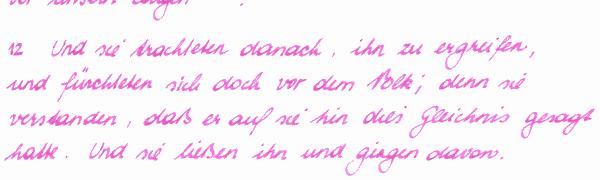 12 Und sie trachteten danach, ihn zu ergreifen,
und fürchteten sich doch vor dem Volk; denn sie
verstanden, daß er auf sie hin dies Gleichnis gesagt
hatte. Und sie ließen ihn und gingen davon.